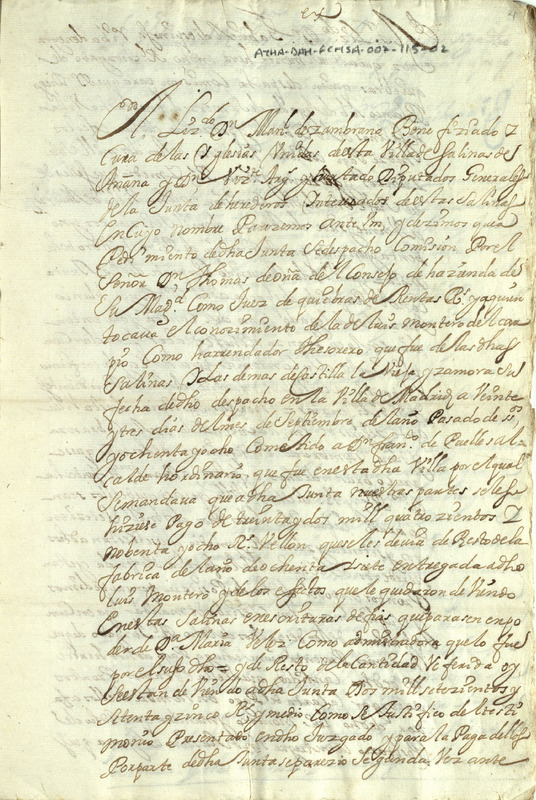 ATHA-DAH-FCMSA-007-115-02
El Liz.do Dn Man.l de zambrano Benefiziado y
Cura de las Yglesias Unidas desta Villa de Salinas de
Añana y Dn Diputados Generales
de la Junta de herederos Interesados destas Salinas
En cuyo nombre Parezemos Ante Vm, y dezimos que a
Pedimiento de dha Junta se despacho Comision Por el
Señor Dn Thomas de oña de el Consejo de hazienda de
Su Mag.d Como Juez de quiebras de Rentas R.s y a quien
tocava el Conozimiento de la de luis montero de el Corn
pio Como harrendador thesorero que fue de las dhas
Salinas y de las demas de Castilla la Vieja y zamora Su
fecha de dho despacho en la Villa de Madrid, a Veinte
y tres dias de el mes de Septiembre de el año Pasado de
y ochenta y ocho Cometido a Dn fran.co de Paeles al
calde hordinario que fue en esta dha Villa por el qual
Se mandava que a dha Junta nuestras partes se les
hiziese Pago de treinta y dos mill quatrozientos y
nobenta y ocho R.s Vellon, que se les devia de Resto de la
fabrica de el año de ochenta y siete entregada a dho
luis Montero y de los efectos que le quedaron deviendo
En estas Salinas en escrituras de fias que pararen en po
der de D.a Maria Velez Como administradora que lo fue
por el suso dho = y de Resto de la Cantidad Referida oy
se estan deviendo a dha Junta Dos mill setezientos y
setenta y zinco R.s y medio Como se Justifico de el testi
monio Presentado en dho Juzgado y para la Paga de ellos
Por parte de dha Junta se parezio Segunda Vez ante